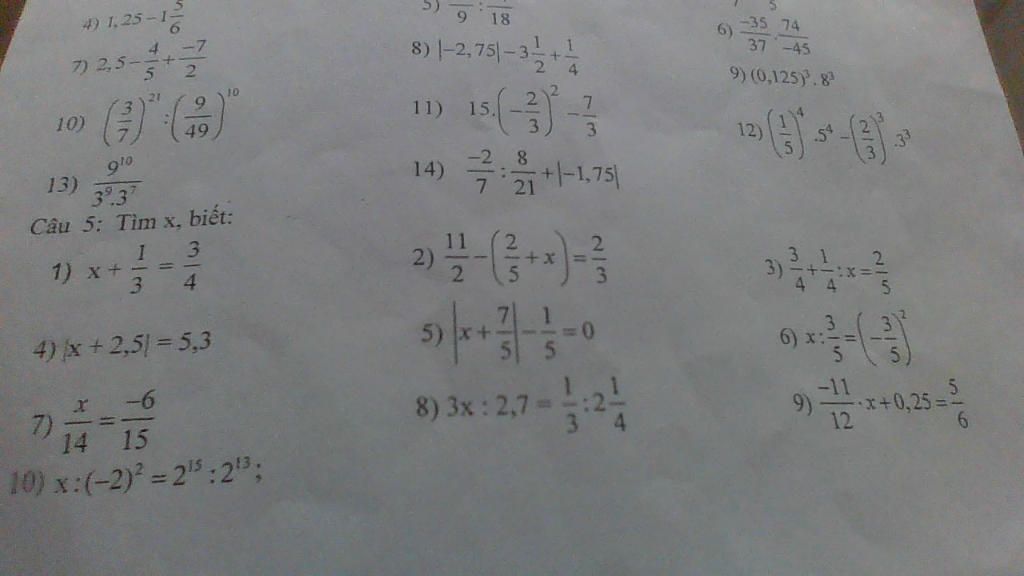 4) 1,25 − 1 5/6 5) /9 : /18 6) −35/37 . 74/−45
7) 2,5 − 4/5 + −7/2 8) |−2,75| − 3 1/2 + 1/4 9) (0,125)³ . 8³
10) (3/7)²¹ : (9/49)¹⁰ 11) 15.(−2/3)² − 7/3 12) (1/5)⁴ .5⁴ − (2/3)³ .3³
13) 9¹⁰/3⁹.3⁷ 14) −2/7 : 8/21 + |−1,75|
Câu 5: Tìm x, biết:
1) x + 1/3 = 3/4 2) 11/2 − (2/5 + x) = 2/3 3) 3/4 + 1/4 : x = 2/5
4) |x + 2,5| = 5,3 5) |x + 7/5| − 1/5 = 0 6) x : 3/5 = (−3/5)²
7) x/14 = −6/15 8) 3x : 2,7 = 1/3 : 2 1/4 9) −11/12 . x + 0,25 = 5/6
10) x : (−2)² = 2¹⁵ : 2¹³ ;